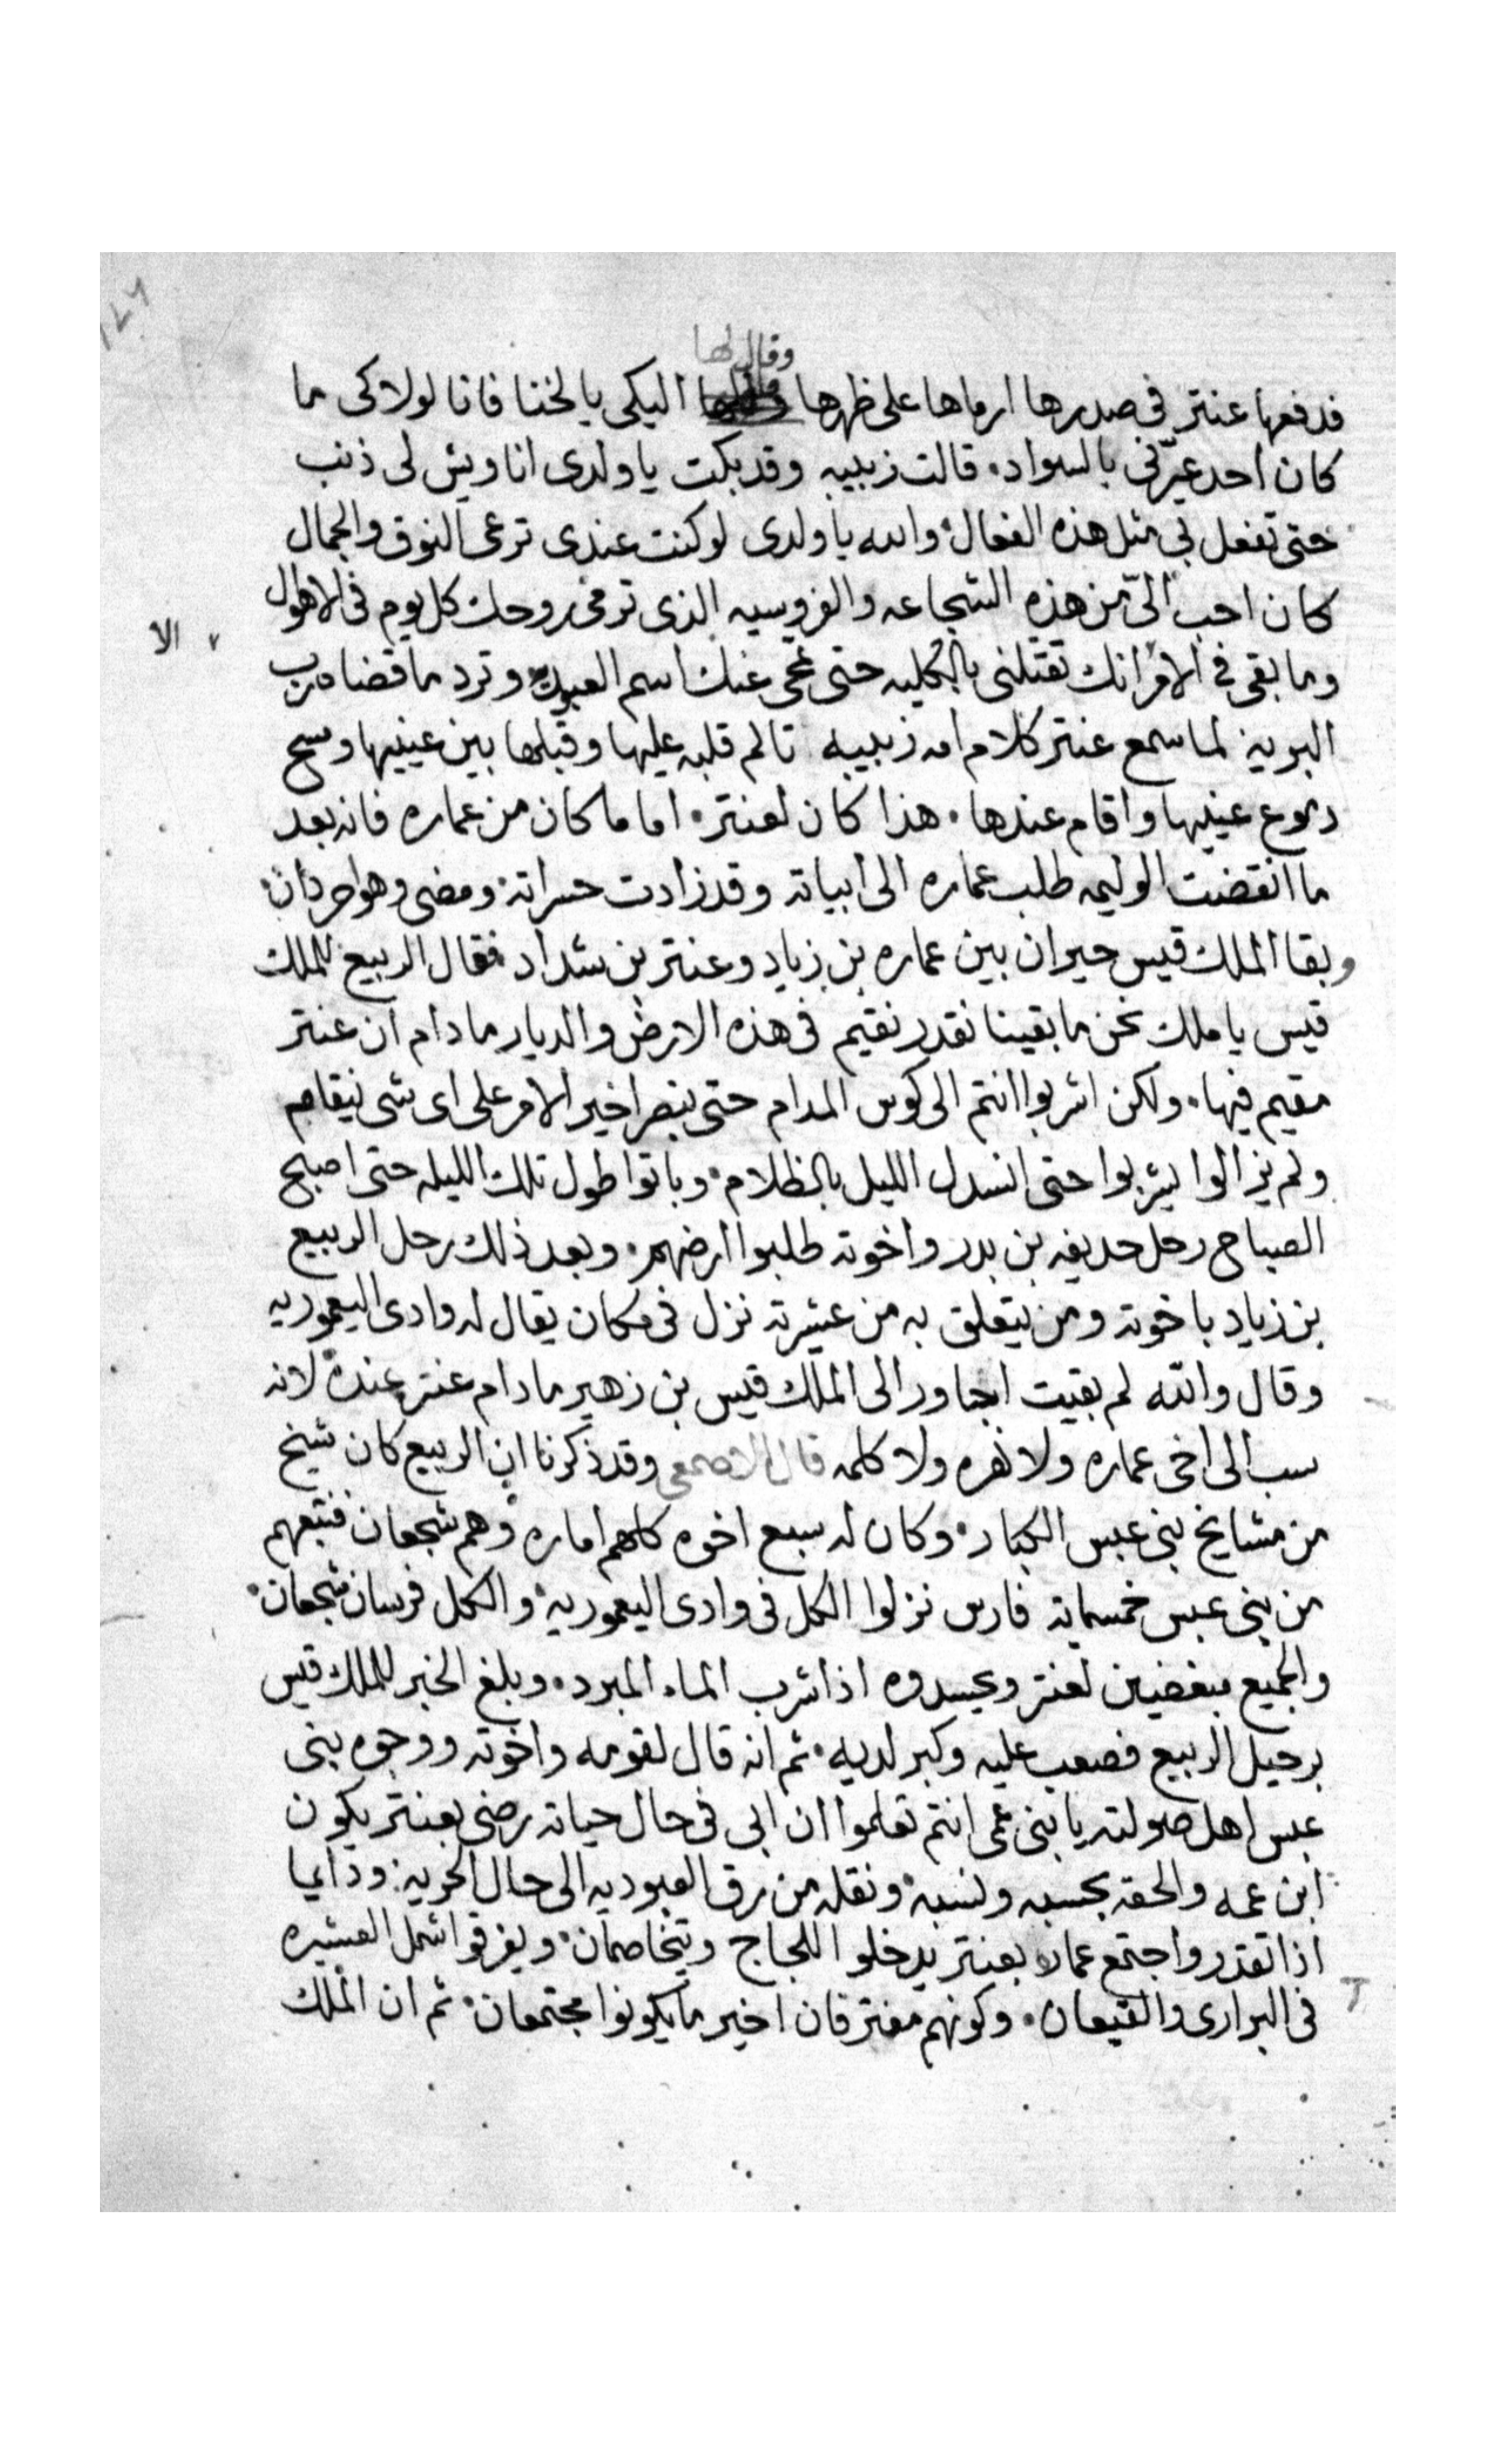 وقال لها
فدفعها عنتر في صدرها ارماها على ظهرها اليكي يا لخنا فانا لولاكى ما
كان احد عيّرني بالسواد، قالت زبيبه وقد بكت يا ولدى انا ويش لى ذنب
حتى تفعل بي مثل هذه الفعال والله يا ولدى لو كنت عندى ترعى النوق والجمال
كان احب الىّ من هذه الشجاعه والفروسيه الذى ترمى روحك كل يوم في الاهوال
الا
وما بقى في الامر انك تقتلنى بالكليه حتى تمحى عنك اسم العبوديه وترد ما قضا رب
البريه لما سمع عنتر كلام امه زبيبه تالم قلبه عليها وقبلها بين عينيها ومسح
دموع عينيها واقام عندها، هذا كان لعنتر، اما ما كان من عماره فانه بعد
ما انقضت الوليمه طلب عماره الى ابياته وقد زادت حسراته ومضى وهو احردان
وبقا الملك قيس حيران بين عماره بن زياد وعنتر بن شداد فقال الربيع للملك
قيس يا ملك نحن ما بقينا نقدر نقيم في هذه الارض والديار ما دام ان عنتر
مقيم فيها، ولكن اشربوا انتم الى كوس المدام حتى نبصر اخير الامر على اى شى
ولم يزالوا يشربوا حتى انسدل الليل بالظلام، وباتوا طول تلك الليله حتى اصبح
الصباح رحل حديفه بن بدر واخوته طلبوا ارضهم، وبعد ذلك رحل الربيع
بن زياد باخوته ومن يتعلق به من عشيرته نزل في مكان يقال له وادى اليعموريه
وقال والله لم بقيت اجاور الى الملك قيس بن زهير ما دام عنتر عنده لانه
سب الى اخى عماره ولا نهره ولا كلمه قال الاصمعي وقد ذكرنا ان الربيع كان شيخ
من مشايخ بنى عبس الكبار، وكان له سبع اخوه كلهم اماره وهم شجعان فتبعهم
من بنى عبس خمسمايه فارس نزلوا الكل في وادى اليعموريه والكل فرسان شجعان،
والجميع مبغضين لعنتر ويحسدوه اذا شرب الماء المبرد، وبلغ الخبر للملك قيس
برحيل الربيع فصعب عليه وكبر لديه، ثم انه قال لقومه واخوته ووجوه بنى
عبس اهل صولته يا بنى عمى انتم تعلموا ان ابى في حال حياته رضى بعنتر يكون
ابن عمه والحقه بحسبه ونسبه، ونقله من رق العبوديه الى حال الحريه ودايما
اذا تقدر واجتمع عماره بعنتر يدخلوا اللجاج ويتخاصمان، ويفرقوا شمل العشيره
في البرارى والقيعان، وكونهم مفترقان اخير ما يكونوا مجتمعان، ثم ان الملك